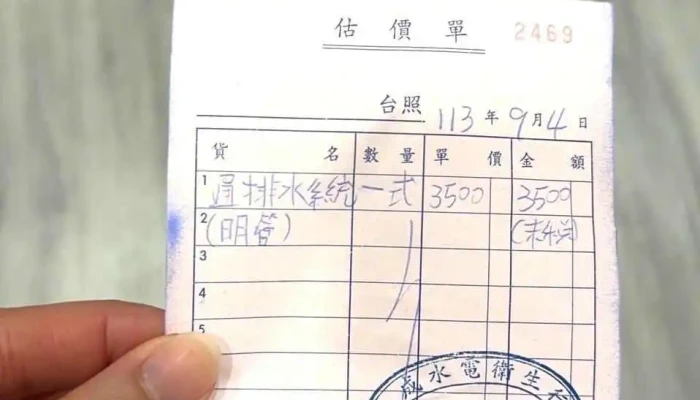 估價單 2469
台照 113年9月4日
貨名 數量 單價 金額
1 排水系統 一式 3500 3500
2 (明管) (未稅)
3
4
5
水電衛生